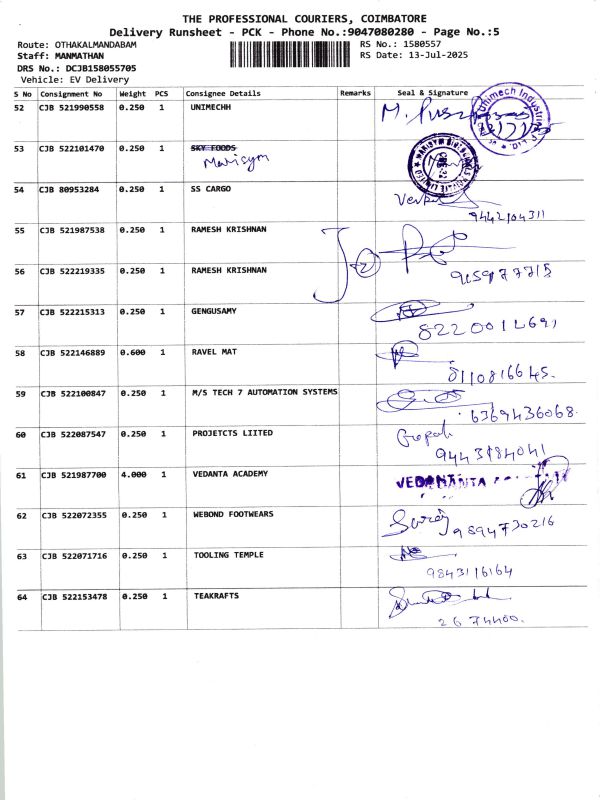 THE PROFESSIONAL COURIERS, COIMBATORE
Delivery Runsheet - PCK - Phone No.:9047080280 - Page No.:5
Route: OTHAKALMANDABAM RS No.: 1580557
Staff: MANMATHAN RS Date: 13-Jul-2025
DRS No.: DCJB158055705
Vehicle: EV Delivery
S No Consignment No Weight PCS Consignee Details Remarks Seal & Signature
52 CJB 521990558 0.250 1 UNIMECHH
53 CJB 522101470 0.250 1 SKY FOODS
Marisym
54 CJB 80953284 0.250 1 SS CARGO
9442104311
55 CJB 521987538 0.250 1 RAMESH KRISHNAN
56 CJB 522219335 0.250 1 RAMESH KRISHNAN
57 CJB 522215313 0.250 1 GENGUSAMY
58 CJB 522146889 0.600 1 RAVEL MAT
8110816645.
59 CJB 522100847 0.250 1 M/S TECH 7 AUTOMATION SYSTEMS
6369436068.
60 CJB 522087547 0.250 1 PROJETCTS LIITED
Gopal
9443184041
61 CJB 521987700 4.000 1 VEDANTA ACADEMY
VEDANTA
62 CJB 522072355 0.250 1 WEBOND FOOTWEARS
9894730216
63 CJB 522071716 0.250 1 TOOLING TEMPLE
9843116164
64 CJB 522153478 0.250 1 TEAKRAFTS
2674400.